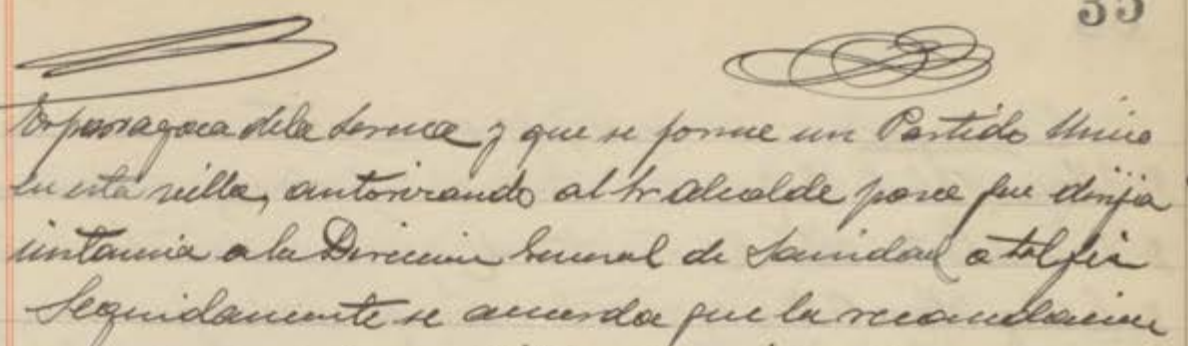 35
Esparragosa de la Serena y que se forme un Partido Unico
en esta villa, autorizando al Sr Alcalde para que dirija
instancia a la Direccion General de Sanidad a tal fin
Seguidamente se acuerda que la recaudacion